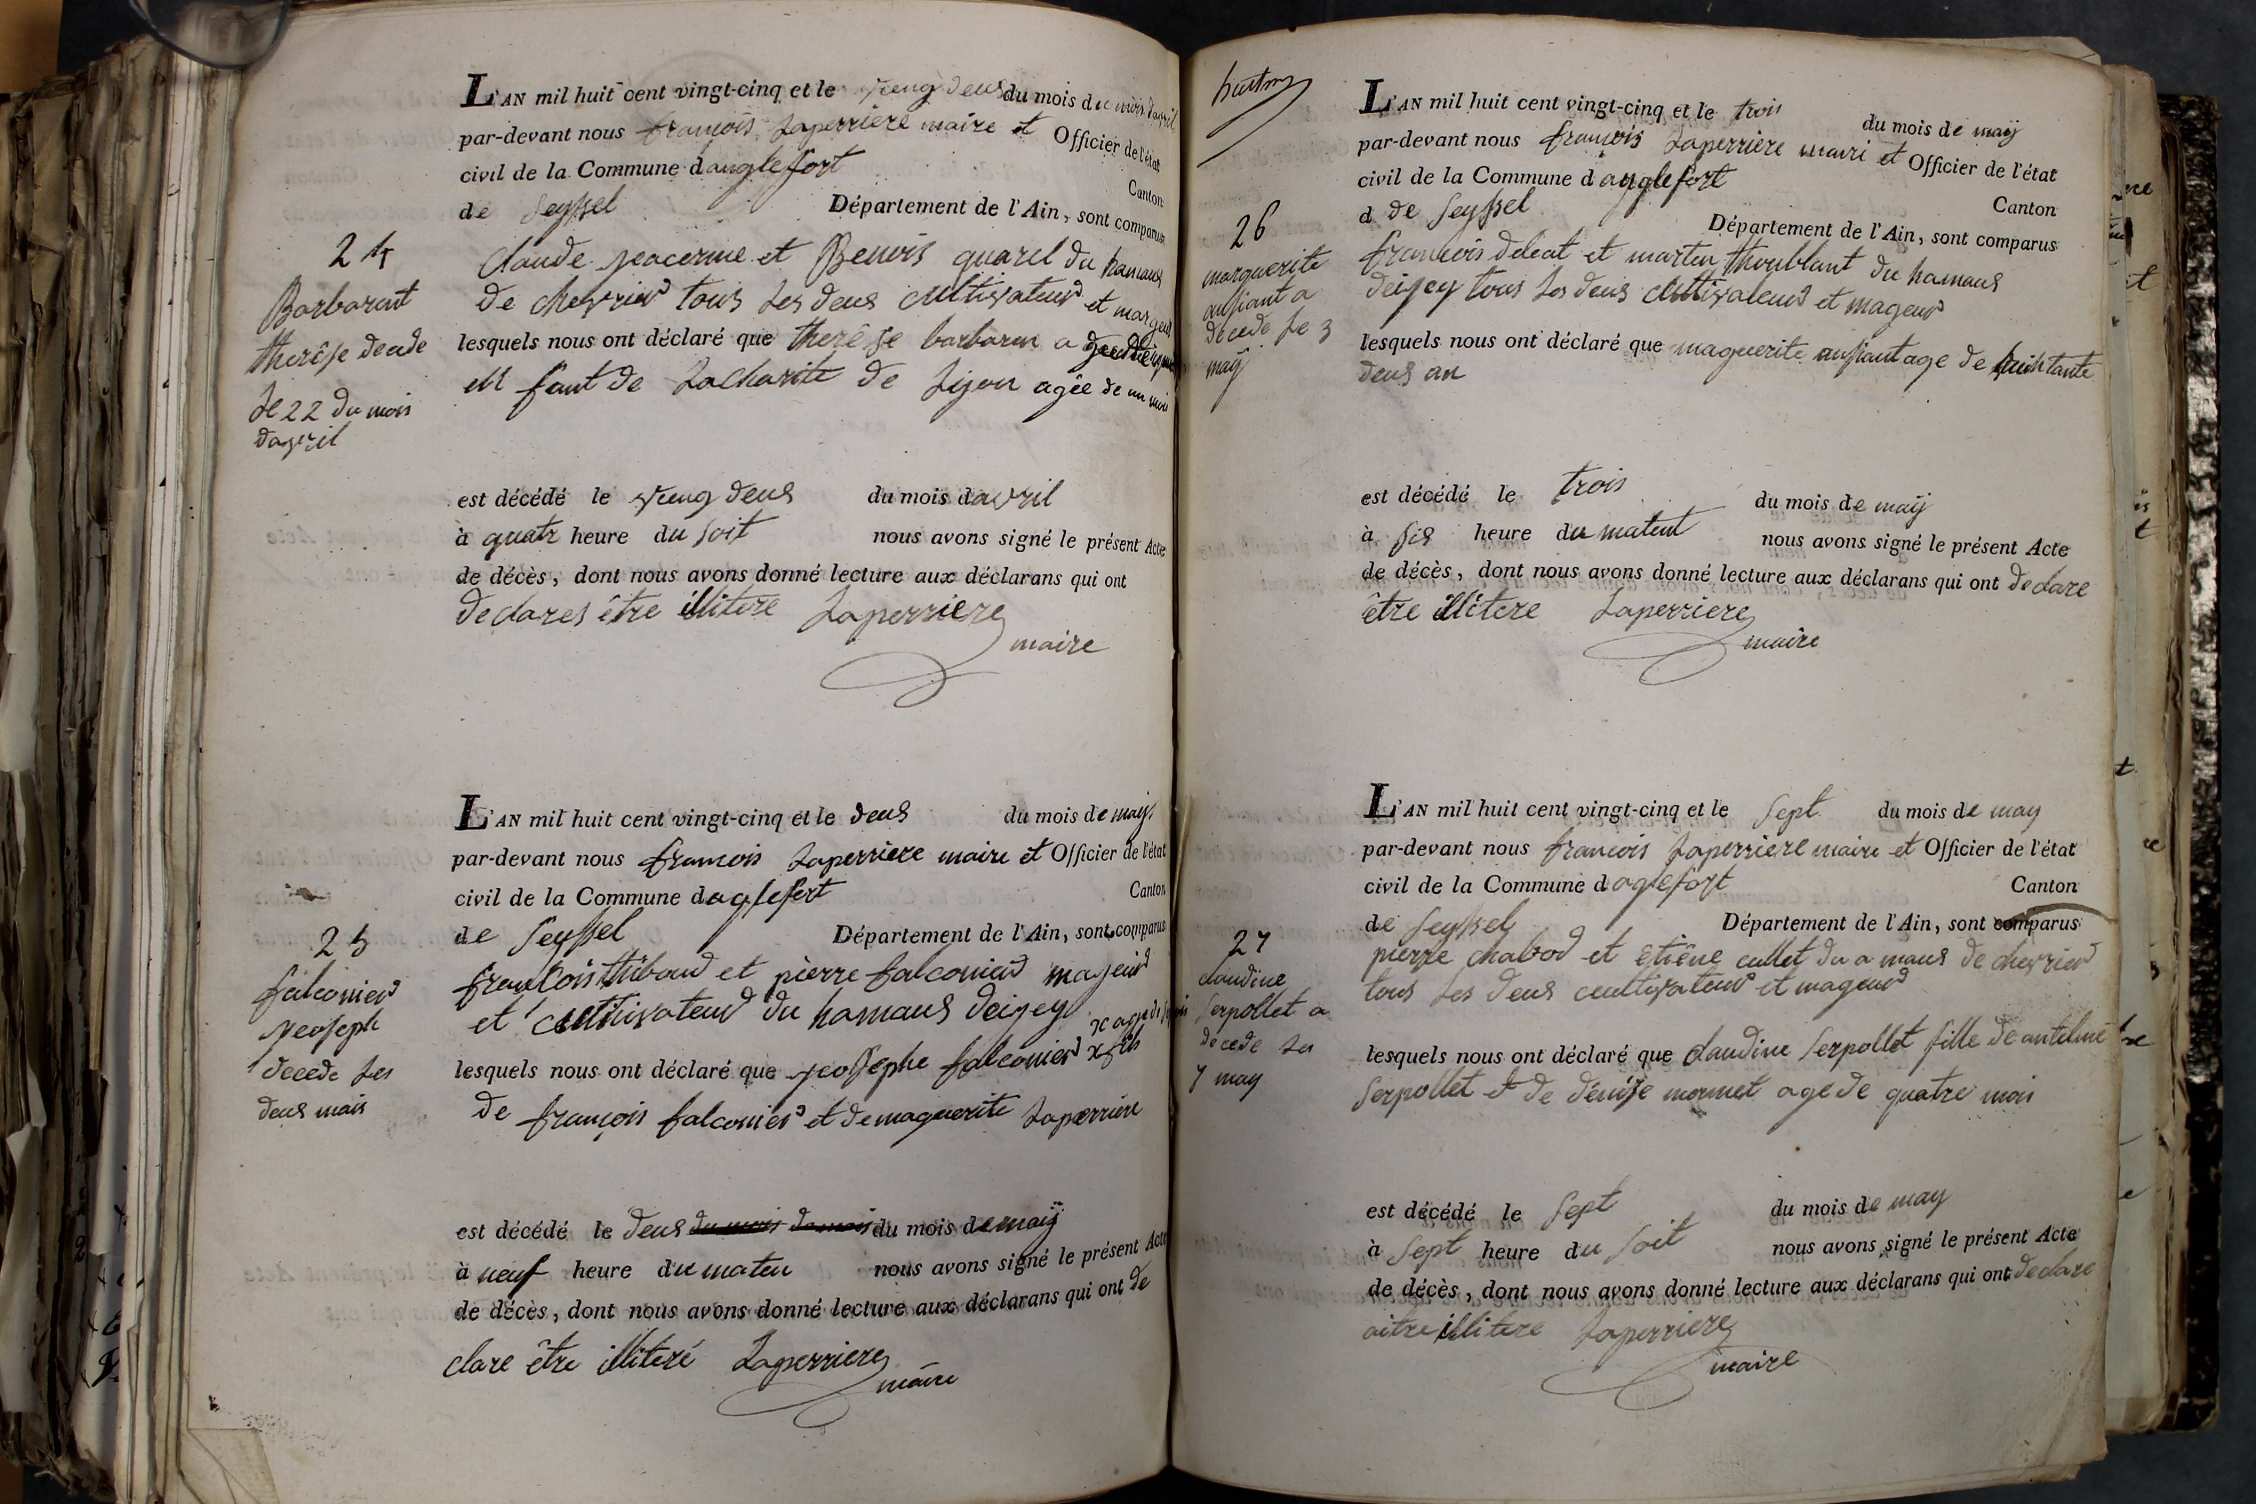 L'AN mil huit cent vingt-cinq et le veing deus du mois du mois davril
par-devant nous françois Laperriere maire et Officier de l'état
civil de la Commune danglefort
Canton
de Seyssel Département de l'Ain, sont comparus
24
Claude et Benois quarel du hamaus
de chevrier tous Les deus cultivateur et mageur
Barbarant
therêse decede
Le 22 du mois
davril
lesquels nous ont déclaré que therêse barbaran a
en fant de Lacharite de Lijon agêe de un mois
est décédé le veing deus du mois davril
à quatr heure du soit nous avons signé le présent Acte
de décès, dont nous avons donné lecture aux déclarans qui ont
declares être illitere Laperriere
maire
L'AN mil huit cent vingt-cinq et le deus du mois de maij
par-devant nous francois Laperriere maire et Officier de l'état
civil de la Commune daglefort
Canton
de Seyssel Département de l'Ain, sont comparus
25
falconier
yeoseph
decede Les
deus mais
francois thibaud et pierre falconier mageur
et cultivateur du hamaus deizey
x age de
lesquels nous ont déclaré que yeosephe falconier x fils
de françois falconier et de maguerite Laperriere
est décédé le deus du mois de mois du mois de maÿ
à neuf heure du maten nous avons signé le présent Acte
de décès, dont nous avons donné lecture aux déclarans qui ont de
clare être illiteré Laperriere
maire
L'AN mil huit cent vingt-cinq et le trois du mois de maÿ
par-devant nous françois Laperriere mairi et Officier de l'état
civil de la Commune d anglefort
Canton
d de Seyssel Département de l'Ain, sont comparus
26
marguerite
ansiant a
decede Le 3
maÿ
francois deleat et marten thoublant du hamaus
deizey tous Les deus cultivateur et mageur
lesquels nous ont déclaré que maguerite ansiant age de huihtante
deus an
est décédé le trois du mois de maÿ
à sis heure du matent nous avons signé le présent Acte
de décès, dont nous avons donné lecture aux déclarans qui ont declare
être illitere Laperriere
maire
L'AN mil huit cent vingt-cinq et le sept du mois de may
par-devant nous francois Laperriere maire et Officier de l'état
civil de la Commune daglefort
Canton
de Seyssel Département de l'Ain, sont comparus
27
claudine
Serpollet a
decede Les
7 may
pierre chabod et êtiêne cullet du a maus de chevrier
tous Les deus ceultivateur et mageur
lesquels nous ont déclaré que claudine Serpollet fille de antelme
Serpollet et de dênise mormet age de quatre mois
est décédé le sept du mois de may
à sept heure du soit nous avons signé le présent Acte
de décès, dont nous avons donné lecture aux déclarans qui ont declare
aitre illitere Laperriere
maire